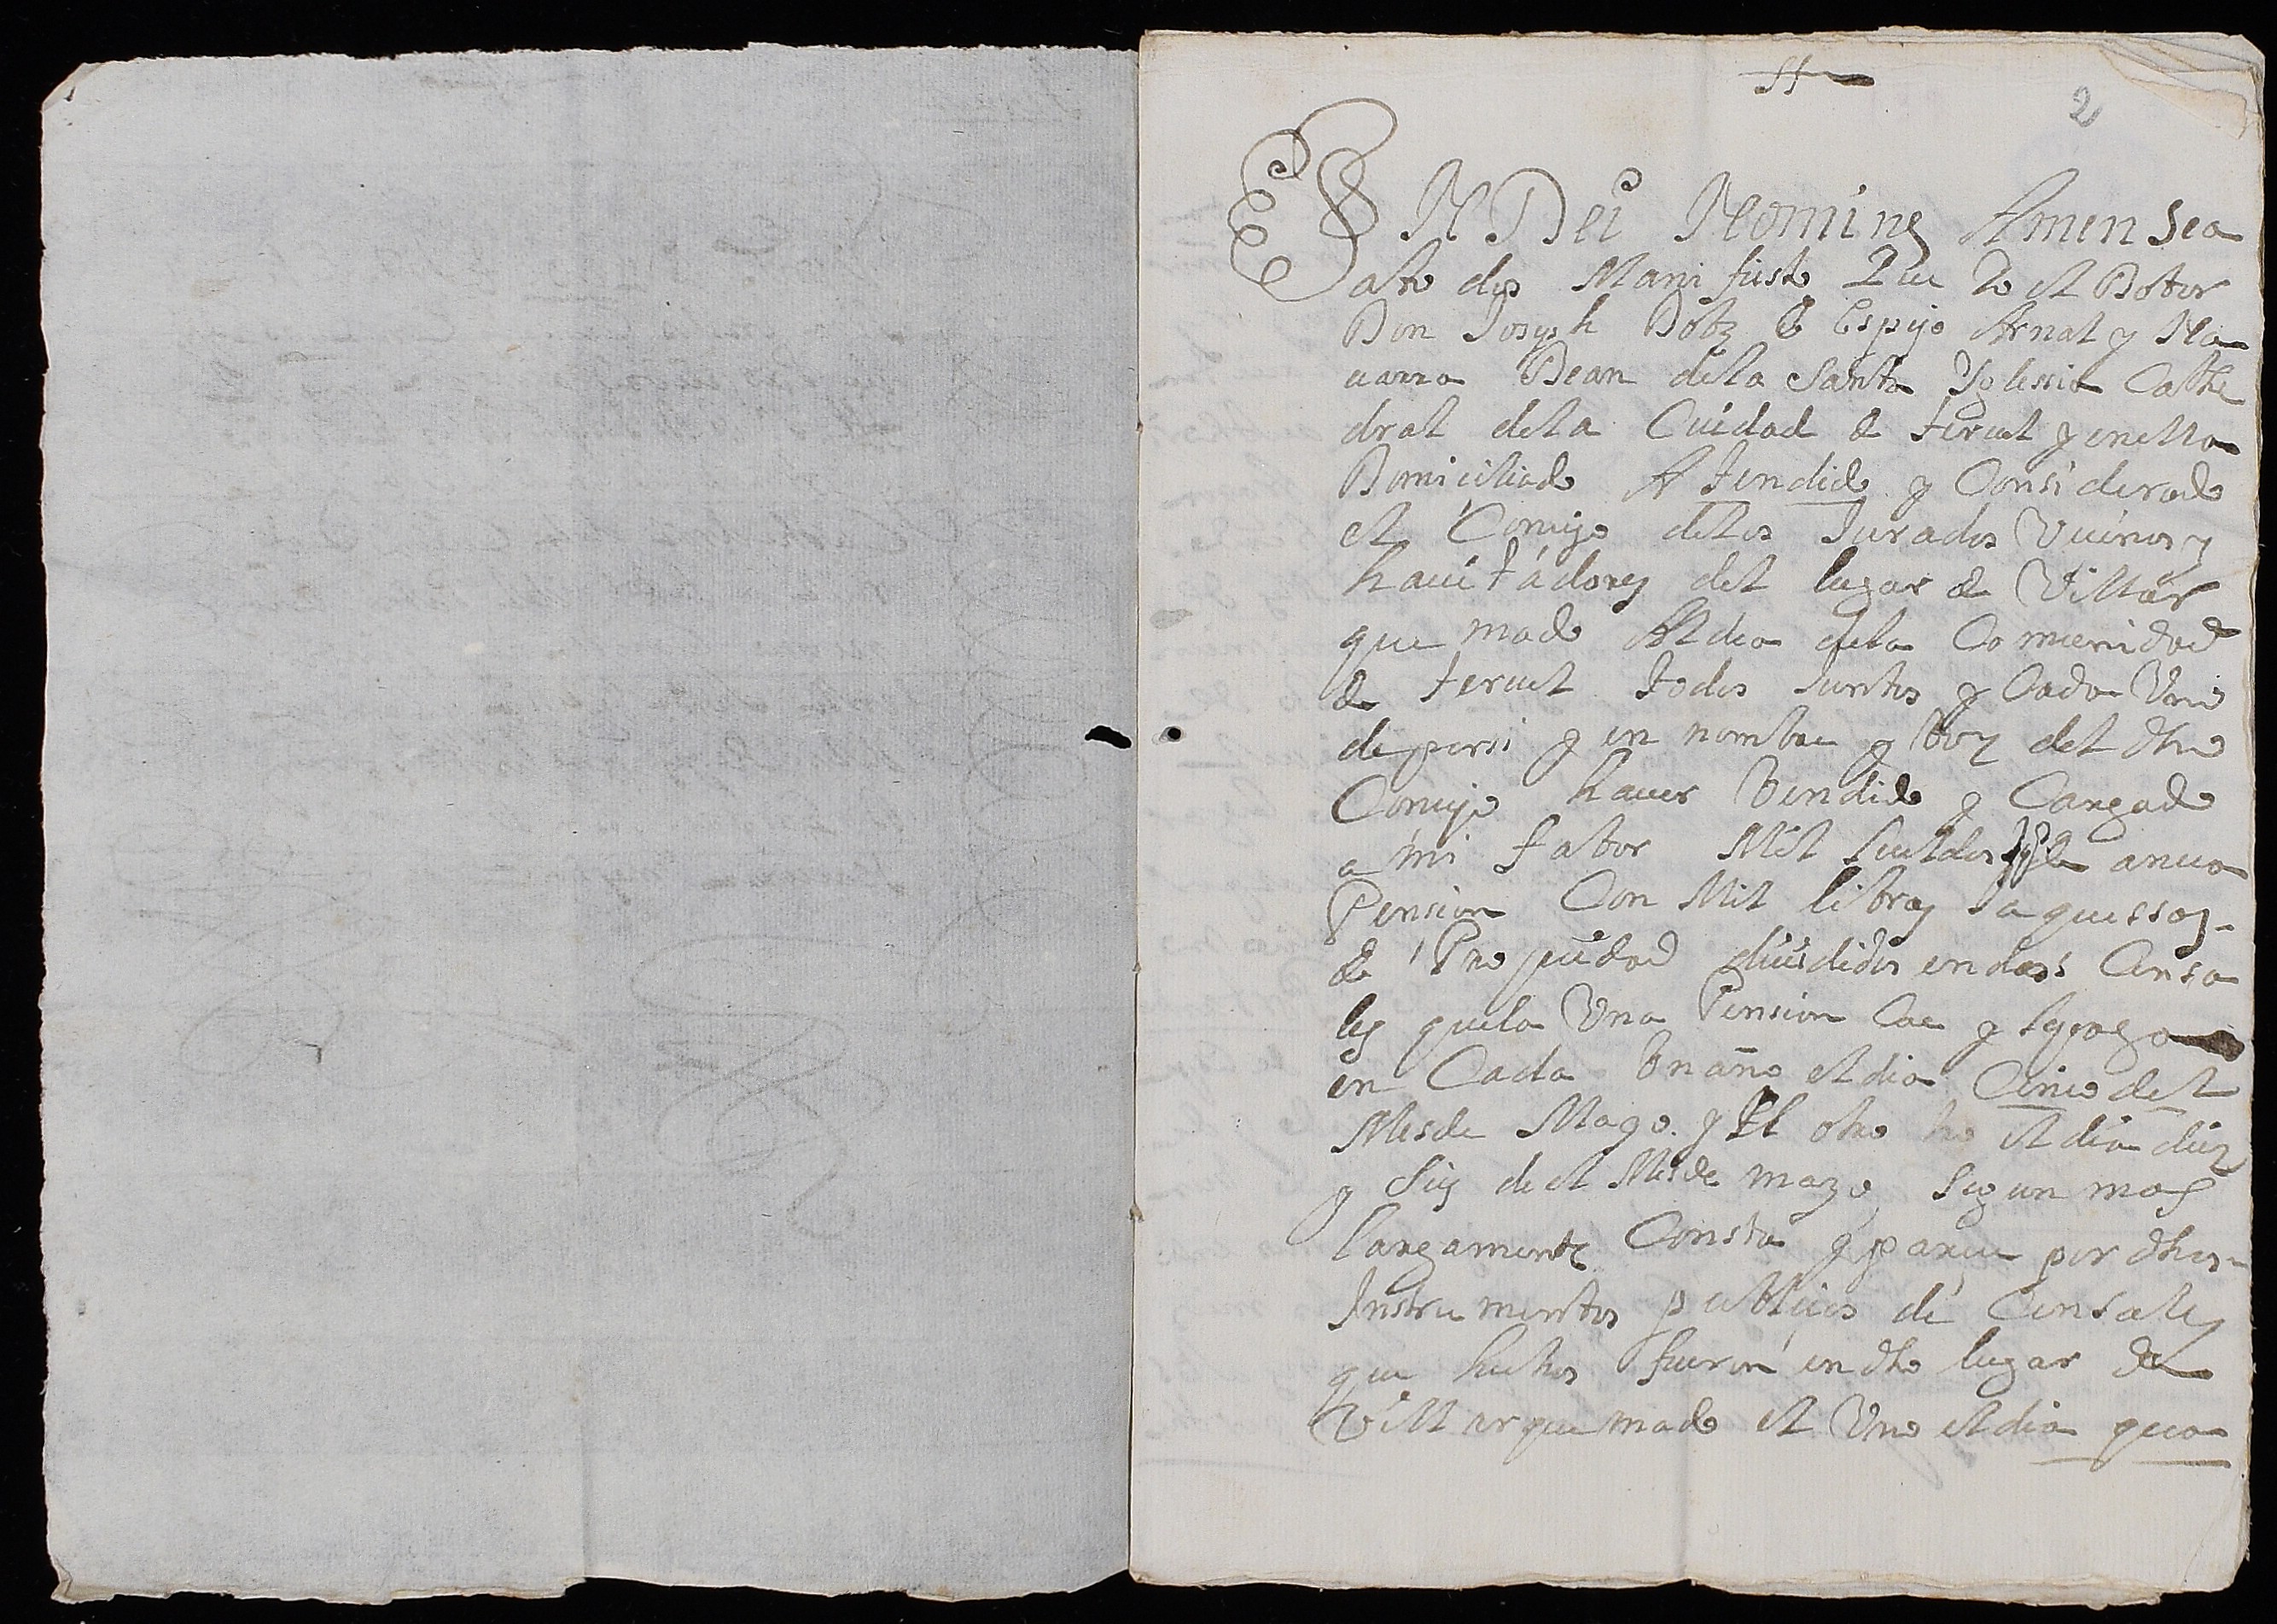 2
IN Dei Nomine Amen Sea
a todos Manifiesto Que Yo el Dotor
Don Joseph Dolz de Espejo Arnal y Na
uarra Dean dela Santa Yglessia Cathe
dral dela Ciudad de Teruel y en ella
Domiciliado Atendido y Considerado
el Concejo delos Jurados Vecinos y
hauitadores del lugar de Villar
quemado Aldea dela Comunidad
de Teruel todos Juntos y Cada Vno
de persi y en nombre y Voz del dho
Concejo hauer Vendido y Cargado
a mi fabor Mil sueldos de anua
Pension Con Mil libras Jaquessas
de Propiedad diuididos en doss Censa
les quela Vna Pension Cae y se paga
en Cada Vn año el dia Cinco del
Mes de Mayo y El otro el dia diez
y seis del Mes de marzo segun mas
largamente Consta y pareze por dhos
Instrumentos publicos de Censales
que hechos fueron en dho lugar de
Villarquemado el Vno el dia qua